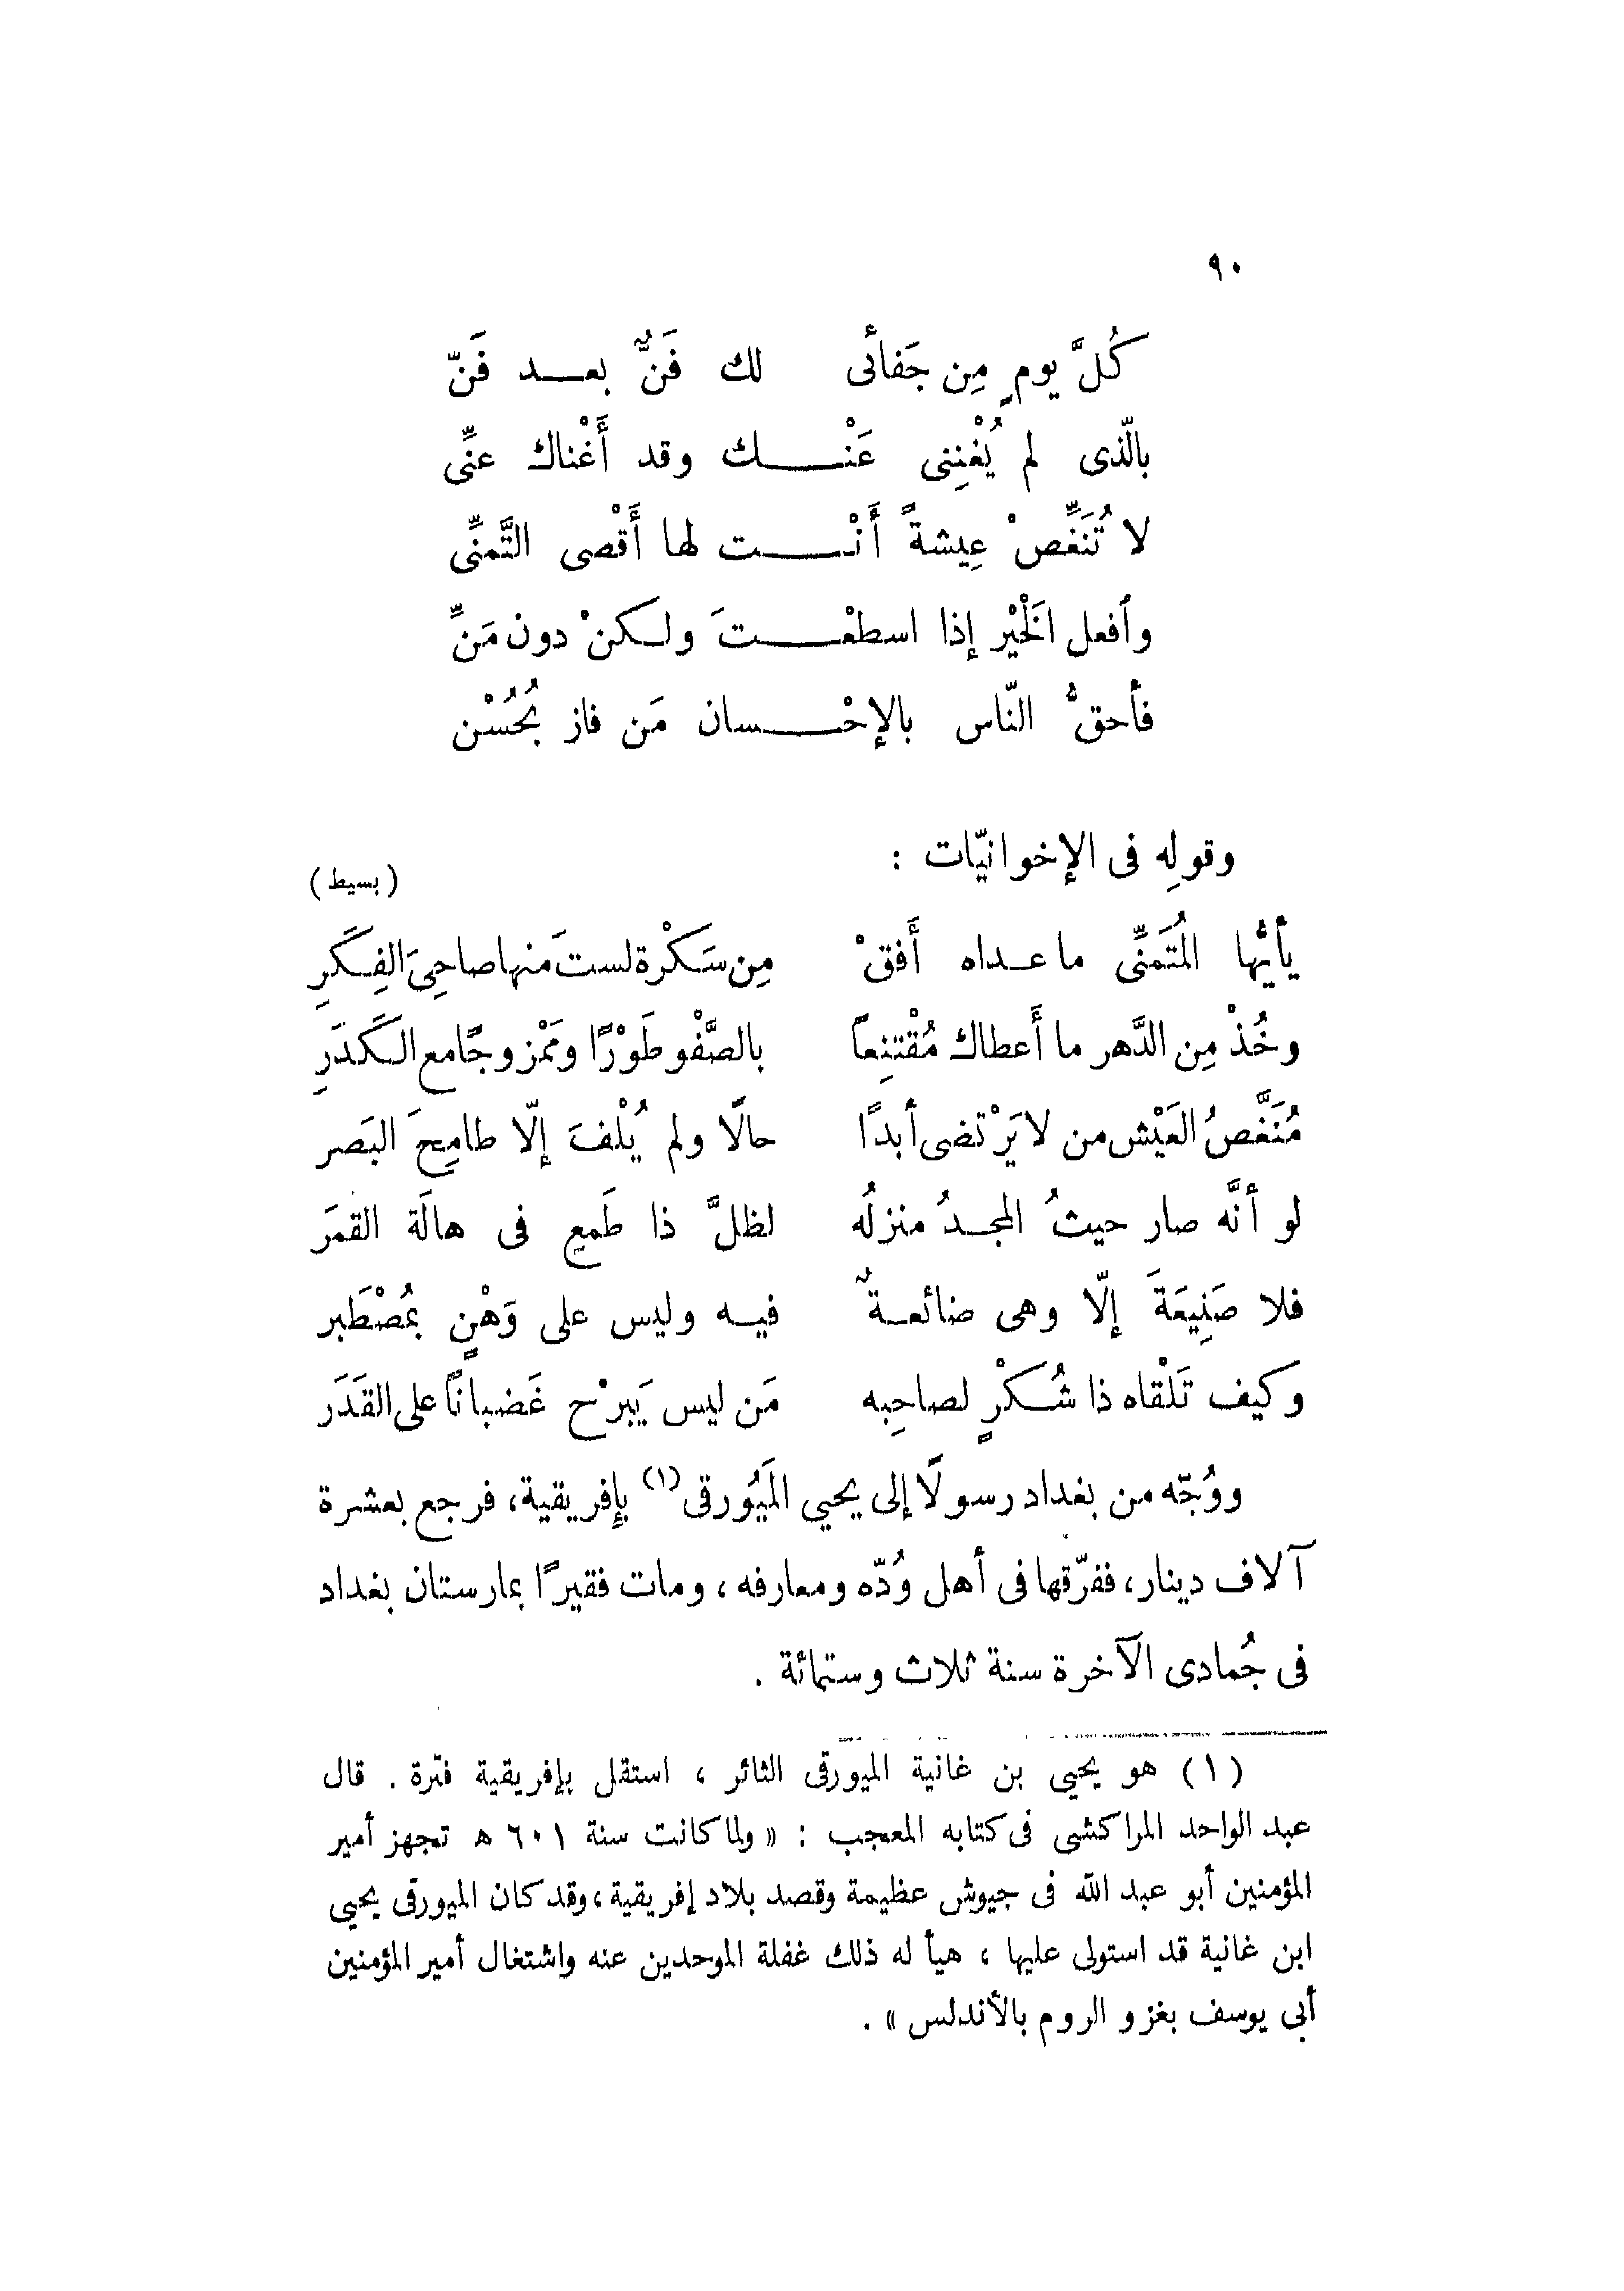 ٩٠
كُلَّ يومٍ مِن جَفائى لك فَنٌّ بعد فَنّ
بالّذى لم يُغْنِنى عَنْك وقد أَغْناك عنِّى
لا تُنَغِّصْ عِيشةً أَنْت لها أَقْصى التَّمنِّى
وأفعل الخَيْر إذا اسطعْتَ ولكنْ دون مَنِّ
فأحقُّ النّاس بالإحْسان مَن فاز بحُسْن
وقولِه فى الإخوانيّات :
(بسيط)
يأيُّها المُتَمنِّى ما عداه أَفقْ مِن سَكْرة لستَ منها صاحِىَ الفِكَرِ
وخُذْ مِن الدَّهر ما أَعطاك مُقْتنِعاً بالصَّفْو طَوْرًا ومَمْزوجًا مع الكَدَرِ
مُنَغَّصُ العَيْش من لا يَرْتضى أبدًا حالًا ولم يُلْفَ إلّا طامِحَ البَصر
لو أنَّه صار حيثُ المجدُ منزلُه لظلَّ ذا طَمعٍ فى هالَة القمَر
فلا صَنِيعَةَ إلّا وهى ضائعةٌ فيه وليس على وَهْنٍ بمُصْطَبر
وكيف تَلْقاه ذا شُكْرٍ لصاحِبه مَن ليس يَبرْح غَضباناً على القَدَر
ووُجّه من بغداد رسولًا إلى يحيي المَيُورقى(١) بإفريقية، فرجع بعشرة
آلاف دينار، ففرّقها فى أهل وُدّه ومعارفه، ومات فقيرًا بمارستان بغداد
فى جُمادى الآخرة سنة ثلاث وستمائة .
(١) هو يحيي بن غانية الميورقى الثائر ، استقل بإفريقية فترة . قال
عبد الواحد المراكشى فى كتابه المعجب : « ولما كانت سنة ٦٠١ ه تجهز أمير
المؤمنين أبو عبد الله فى جيوش عظيمة وقصد بلاد إفريقية، وقد كان الميورقى يحيى
ابن غانية قد استولى عليها ، هيأ له ذلك غفلة الموحدين عنه واشتغال أمير المؤمنين
أبى يوسف بغزو الروم بالأندلس » .